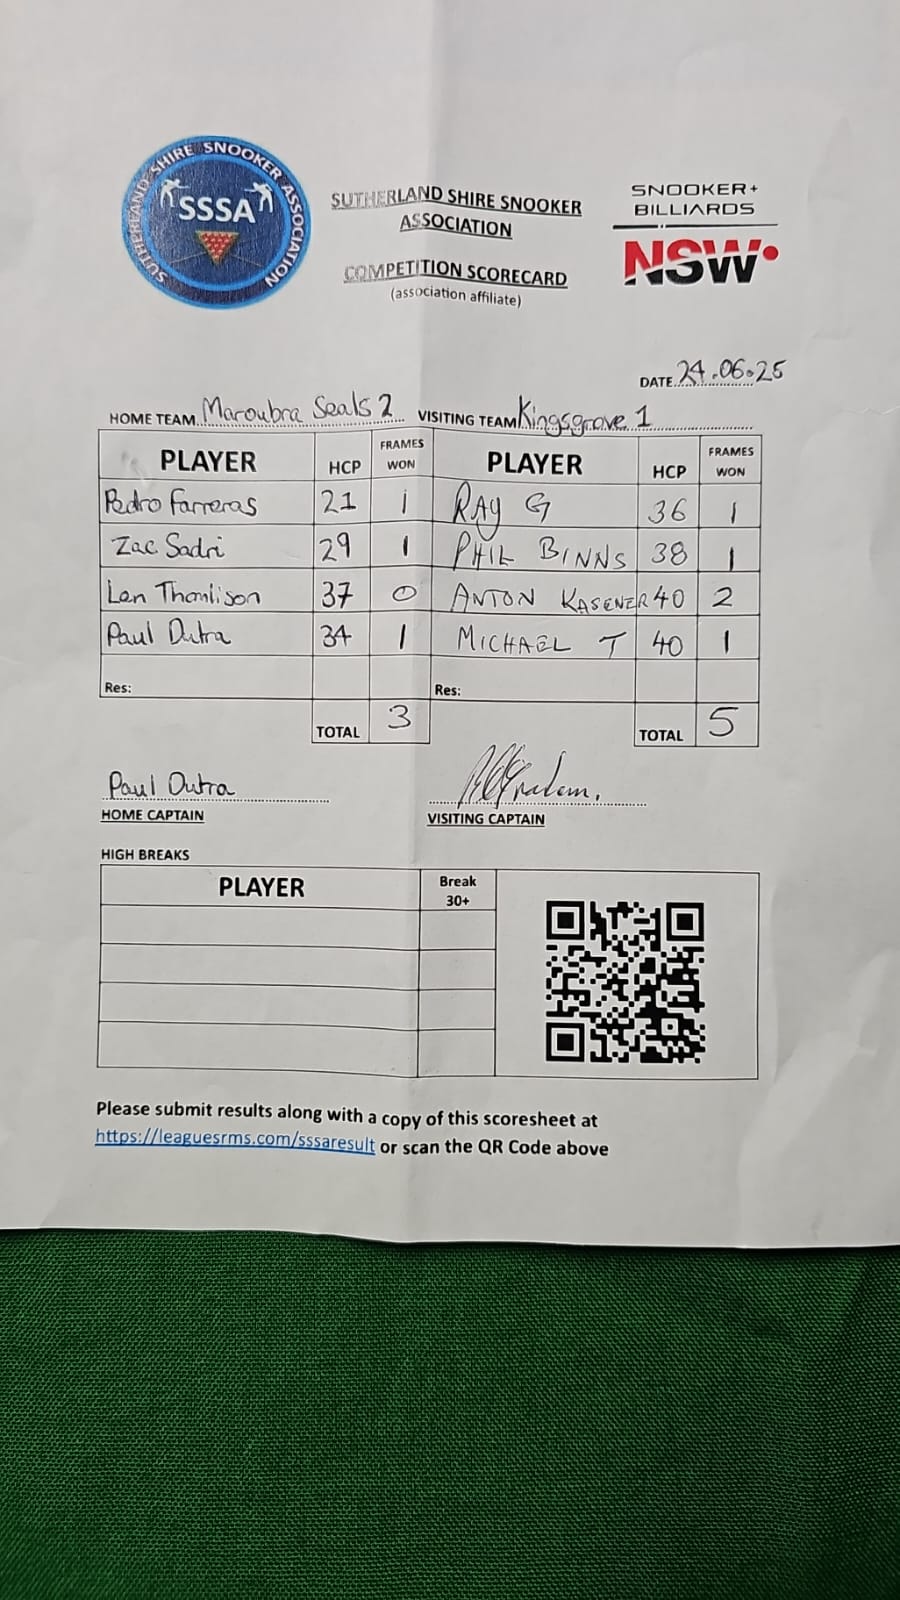 SUTHERLAND SHIRE SNOOKER ASSOCIATION
SSSA
SUTHERLAND SHIRE SNOOKER
ASSOCIATION
COMPETITION SCORECARD
(association affiliate)
SNOOKER+
BILLIARDS
NSW
DATE 24.06.25
HOME TEAM Maroubra Seals 2 VISITING TEAM Kingsgrove 1
PLAYER HCP FRAMES WON PLAYER HCP FRAMES WON
Pedro Farreras 21 1 RAY G 36 1
Zac Sadri 29 1 PHIL BINNS 38 1
Len Thomlison 37 0 ANTON KASENER 40 2
Paul Dutra 34 1 MICHAEL T 40 1
Res: Res:
TOTAL 3 TOTAL 5
Paul Dutra
HOME CAPTAIN VISITING CAPTAIN
HIGH BREAKS
PLAYER Break 30+
Please submit results along with a copy of this scoresheet at
https://leaguesrms.com/sssaresult or scan the QR Code above